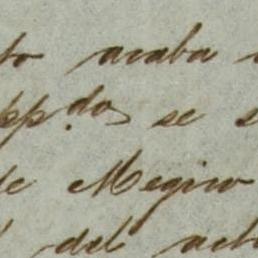 to acaba
pp.dos se s
de Megico
del act